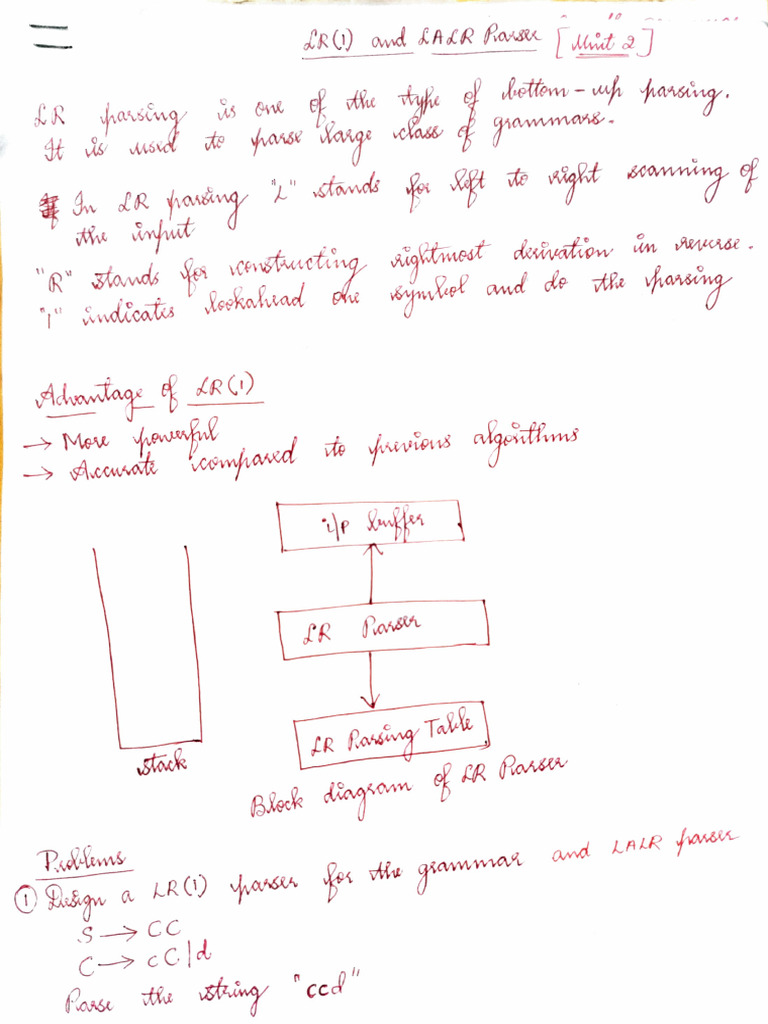 LR(1) and LALR Parser [Unit 2]
LR parsing is one of the type of bottom-up parsing.
It is used to parse large class of grammars.
In LR parsing "L" stands for left to right scanning of
the input
"R" stands for constructing rightmost derivation in reverse.
"1" indicates lookahead one symbol and do the parsing
Advantage of LR(1)
→ More powerful
→ Accurate compared to previous algorithms
i/p buffer
LR Parser
LR Parsing Table
stack
Block diagram of LR Parser
Problems
① Design a LR(1) parser for the grammar and LALR parser
S → CC
C → cC|d
Parse the string "ccd"